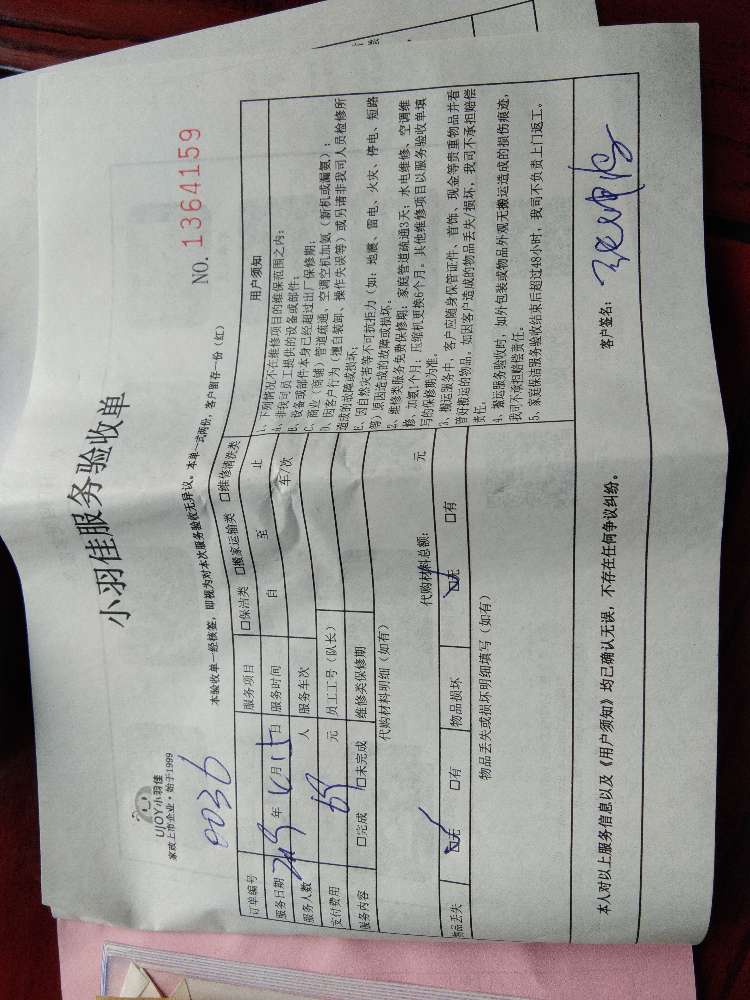 UJOY小羽佳
家政上市企业·始于1999
0036
小羽佳服务验收单
NO. 1364159
本验收单一经核签，即视为对本次服务验收无异议。本单一式两份，客户留存一份（红）
订单编号
服务项目 □保洁类 □搬家运输类 □维修清洗类
服务日期 年 月15日 服务时间 自 至 止
服务人数 人 服务车次 车/次
支付费用 元 员工工号（队长）
服务内容 □完成 □未完成 维修类保修期
代购材料明细（如有）
代购材料总额： 元
物品丢失 ☑无 □有 物品损坏 ☑无 □有
物品丢失或损坏明细填写（如有）
用户须知
1、下列情况不在维修项目的维保范围之内：
A、非我司员工提供的设备或部件；
B、设备或部件本身已经超过出厂保修期；
C、商业（商铺）管道疏通、空调空机加氨（新机或漏氨）；
D、因客户行为（擅自装卸、操作失误等）或另请非我司人员检修所
造成的故障或损坏；
E、因自然灾害等不可抗拒力（如：地震、雷电、火灾、停电、短路
等）原因造成的故障或损坏。
2、维修类服务免费保修期：家庭管道疏通3天；水电维修、空调维
修、加氨1个月；压缩机更换6个月。其他维修项目以服务验收单填
写的保修期为准。
3、搬运服务中，客户应随身保管证件、首饰、现金等贵重物品并看
管好搬运的物品。如因客户造成的物品丢失/损坏，我司不承担赔偿
责任。
4、搬运服务验收时，如外包装或物品外观无搬运造成的损伤痕迹，
我司不承担赔偿责任。
5、家庭保洁服务验收结束后超过48小时，我司不负责上门返工。
本人对以上服务信息以及《用户须知》均已确认无误，不存在任何争议纠纷。
客户签名：